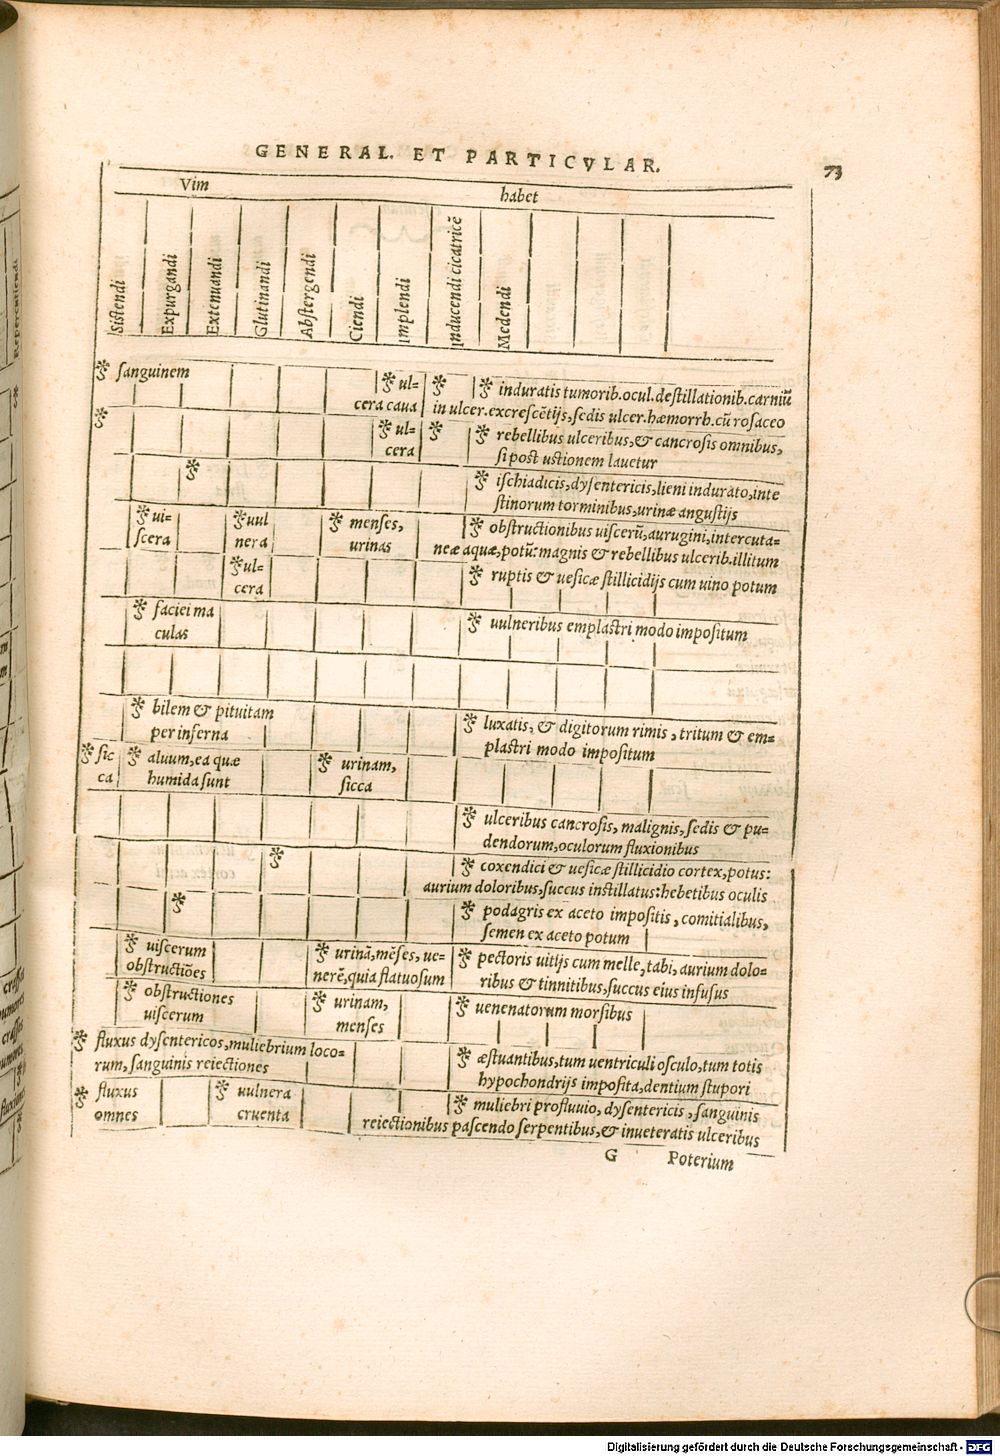 GENERAL. ET PARTICVLAR.
73
Vim
habet
Sistendi
Expurgandi
Extenuandi
Glutinandi
Abstergendi
Ciendi
Implendi
Inducendi cicatricē
Medendi
sanguinem
ul-
cera caua
induratis tumorib.ocul.destillationib.carniū
in ulcer.excrescētijs,sedis ulcer.hæmorrh.cū rosaceo
ul-
cera
rebellibus ulceribus,& cancrosis omnibus,
si post ustionem lauetur
ischiadicis,dysentericis,lieni indurato,inte
stinorum torminibus,urinæ angustijs
ui-
scera
uul
nera
menses,
urinas
obstructionibus uiscerū,aurugini,intercuta-
neæ aquæ,potū:magnis & rebellibus ulcerib.illitum
ul-
cera
ruptis & uesicæ stillicidijs cum uino potum
faciei ma
culas
uulneribus emplastri modo impositum
bilem & pituitam
per inferna
luxatis, & digitorum rimis, tritum & em-
plastri modo impositum
sic
ca
aluum,ea quæ
humida sunt
urinam,
sicca
ulceribus cancrosis, malignis, sedis & pu-
dendorum,oculorum fluxionibus
coxendici & uesicæ stillicidio cortex,potus:
aurium doloribus,succus instillatus:hebetibus oculis
podagris ex aceto impositis, comitialibus,
semen ex aceto potum
uiscerum
obstructiōes
urinā,mēses, ue-
nerē,quia flatuosum
pectoris uitijs cum melle, tabi, aurium dolo-
ribus & tinnitibus,succus eius infusus
obstructiones
uiscerum
urinam,
menses
uenenatorum morsibus
fluxus dysentericos,muliebrium loco-
rum, sanguinis reiectiones
æstuantibus,tum uentriculi osculo,tum totis
hypochondrijs imposita,dentium stupori
fluxus
omnes
uulnera
cruenta
muliebri profluuio, dysentericis, sanguinis
reiectionibus pascendo serpentibus,& inueteratis ulceribus
G
Poterium
Digitalisierung gefördert durch die Deutsche Forschungsgemeinschaft - DFG